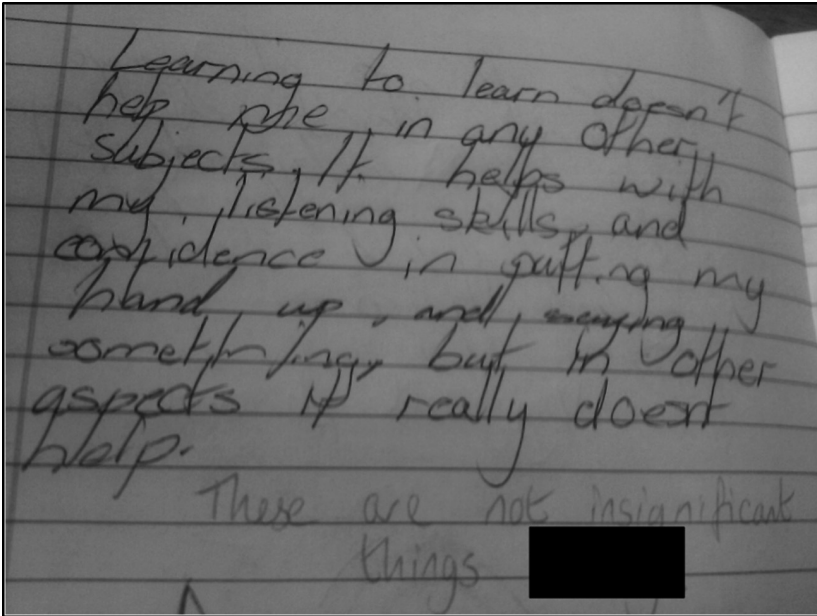 Learning to learn doesn't
help me in any other
subjects. It helps with
my listening skills, and
confidence in putting my
hand up, and saying
something, but in other
aspects it really doesn't
help.
These are not insignificant
things